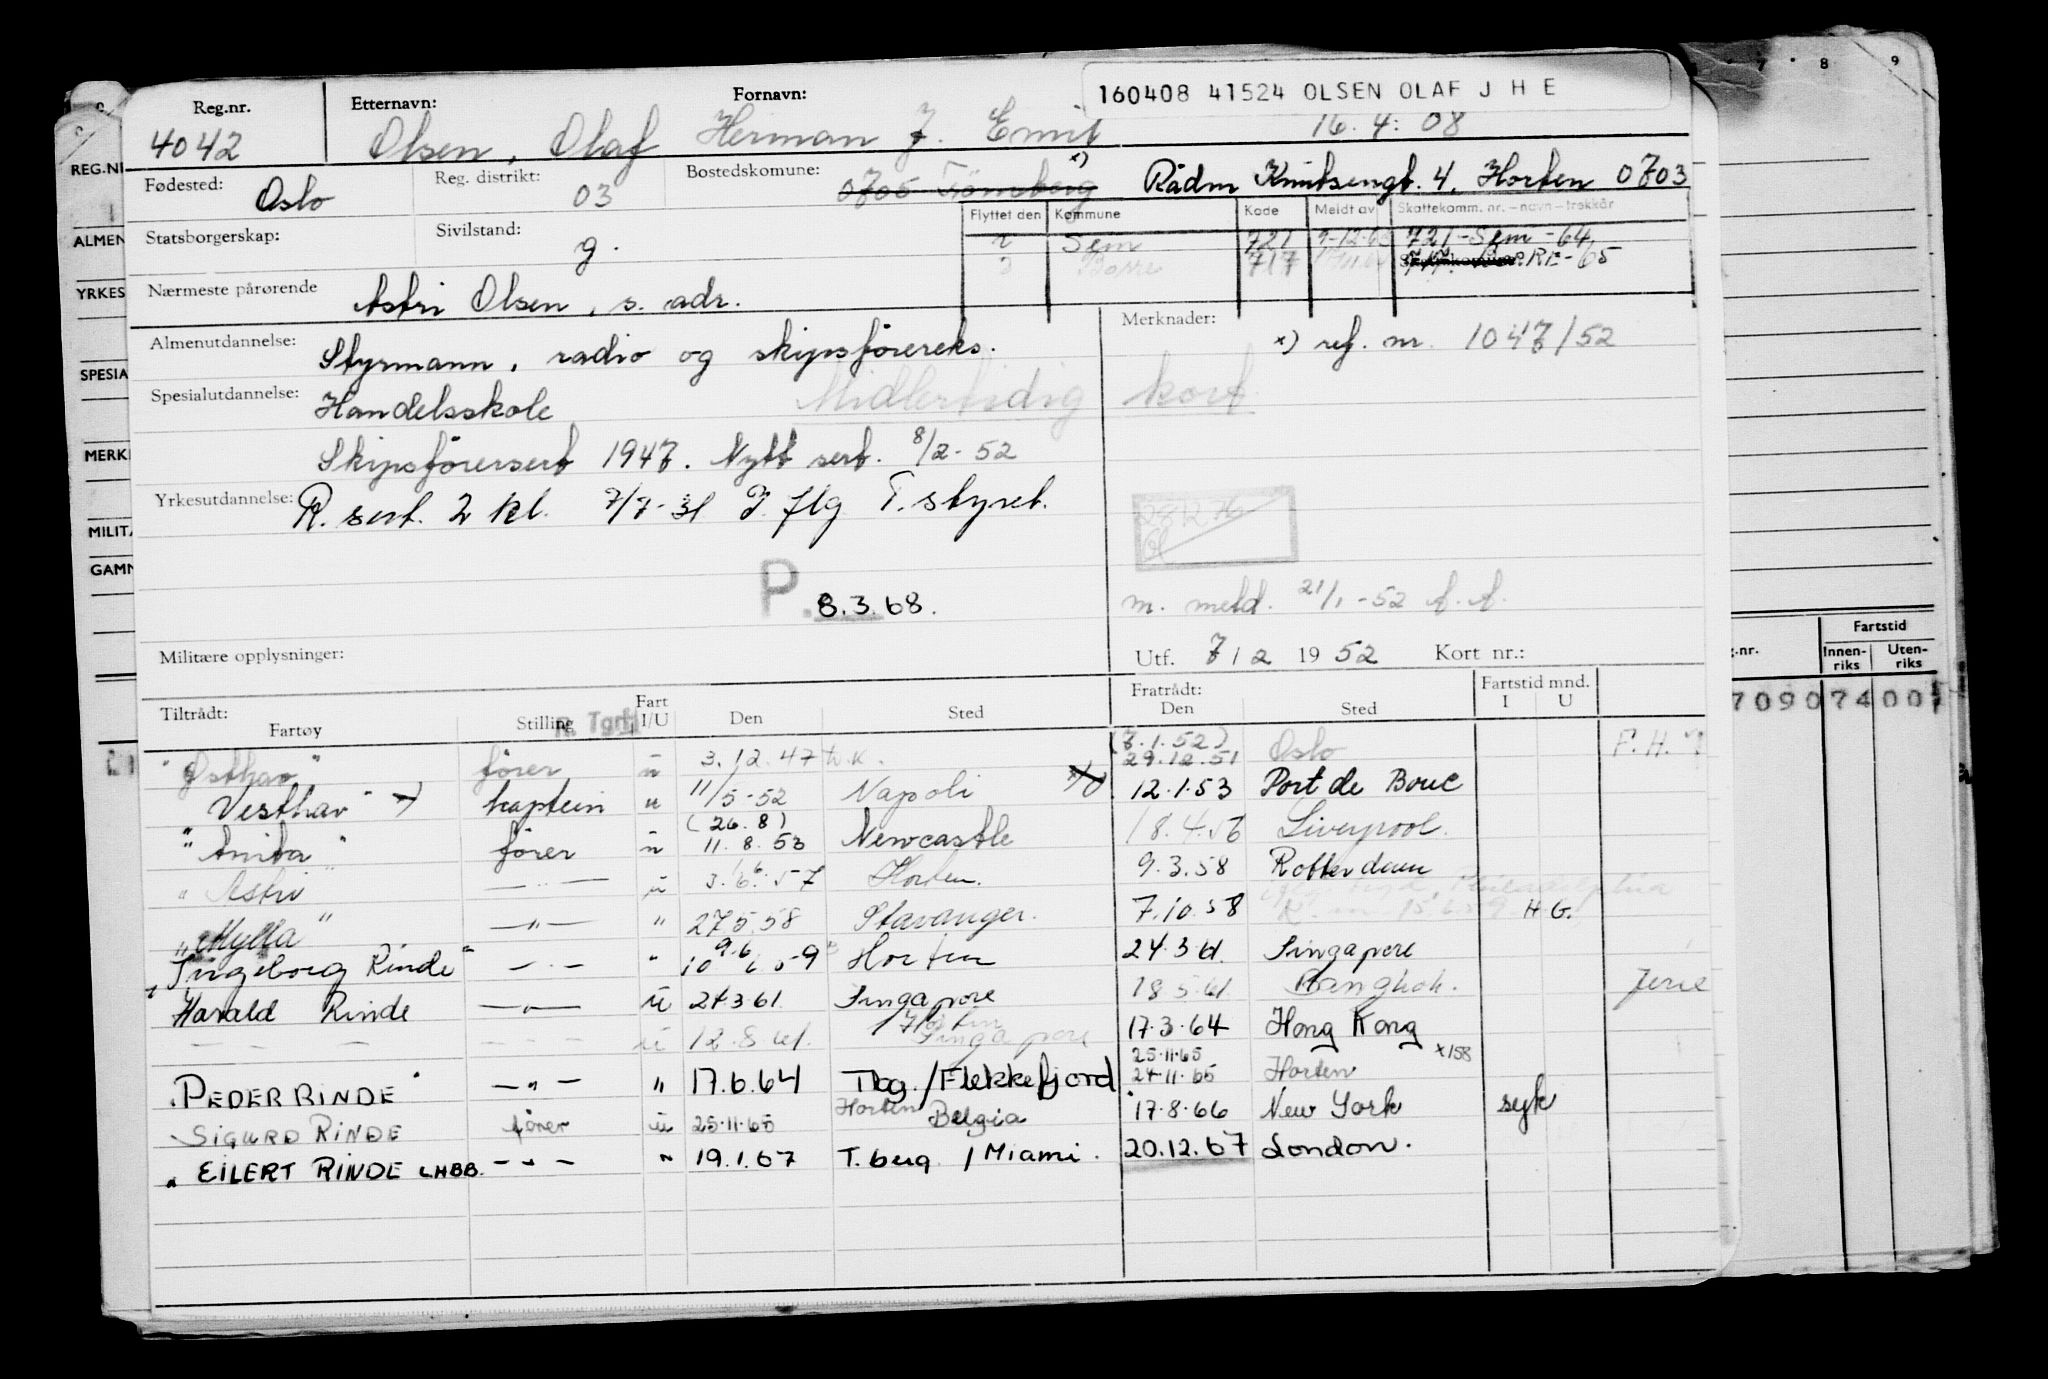 Reg.nr. Etternavn: Fornavn: 160408 41524 OLSEN OLAF J H E
4042 Olsen, Olaf Herman J. Emil 16.4.08
Fødested: Oslo Reg. distrikt: 03 Bostedskomune: 0705 Tönsberg x) Rådm Knutsengt. 4, Horten 0703
Flyttet den Kommune Kode Meldt av Skattekomm. nr. – navn – trekkår
Statsborgerskap: Sivilstand: g.
Sem 721 9-12-63 721 - Sem - 64
Borre 717 RRE - 65
Nærmeste pårørende Astri Olsen, s. adr.
Almenutdannelse: Styrmann, radio og skipsförereks.
Merknader: x) ref. nr. 1047/52
Spesialutdannelse: Handelsskole
Midlertidig kort
Skipsförersert 1947. Nytt sert. 8/2-52
Yrkesutdannelse: R. sert. 2 kl. 7/7-31 J. flg T. styret.
281276
P. 8.3.68.
m. meld. 21/1-52 A.A.
Militære opplysninger: Utf. 7/2 1952 Kort nr.:
Tiltrådt: Fratrådt: Fartstid mnd.
Fartøy Stilling R. Tgrf. Fart I/U Den Sted Den Sted I U
"Østhav" förer u 3.12.47 (7.1.52) 29.12.51 Oslo F.H.
Vesthav" x) kaptein u 11/5-52 Napoli 12.1.53 Port de Bouc
"Anita" förer u (26.8) 11.8.53 Newcastle 18.4.56 Liverpool.
"Astri" —"— u 3.6.57 Horten. 9.3.58 Rotterdam
"Mylla" —"— " 27.5.58 Stavanger. 7.10.58 H.G.
"Ingeborg Rinde" —"— " 9.6 59 Horten 24.3.61. Singapore
Harald Rinde —"— u 24.3.61. Singapore 18.5.61. Bangkok. Ferie
— — — — — — u 12.8.61. Horten Singapore 17.3.64 Hong Kong
"PEDER RINDE" —"— " 17.6.64 Tbg./Flekkefjord 25.11.65 24.11.65 Horten x158
SIGURD RINDE förer u 25.11.65 Horten Belgia 17.8.66 New York syk
" EILERT RINDE LHBB. —"— " 19.1.67 T.berg / Miami. 20.12.67 London.
7 8 9
REG.N
ALMEN
YRKES
SPESIA
MERK
MILIT
GAM
Fartstid
Innenriks Utenriks
709074001